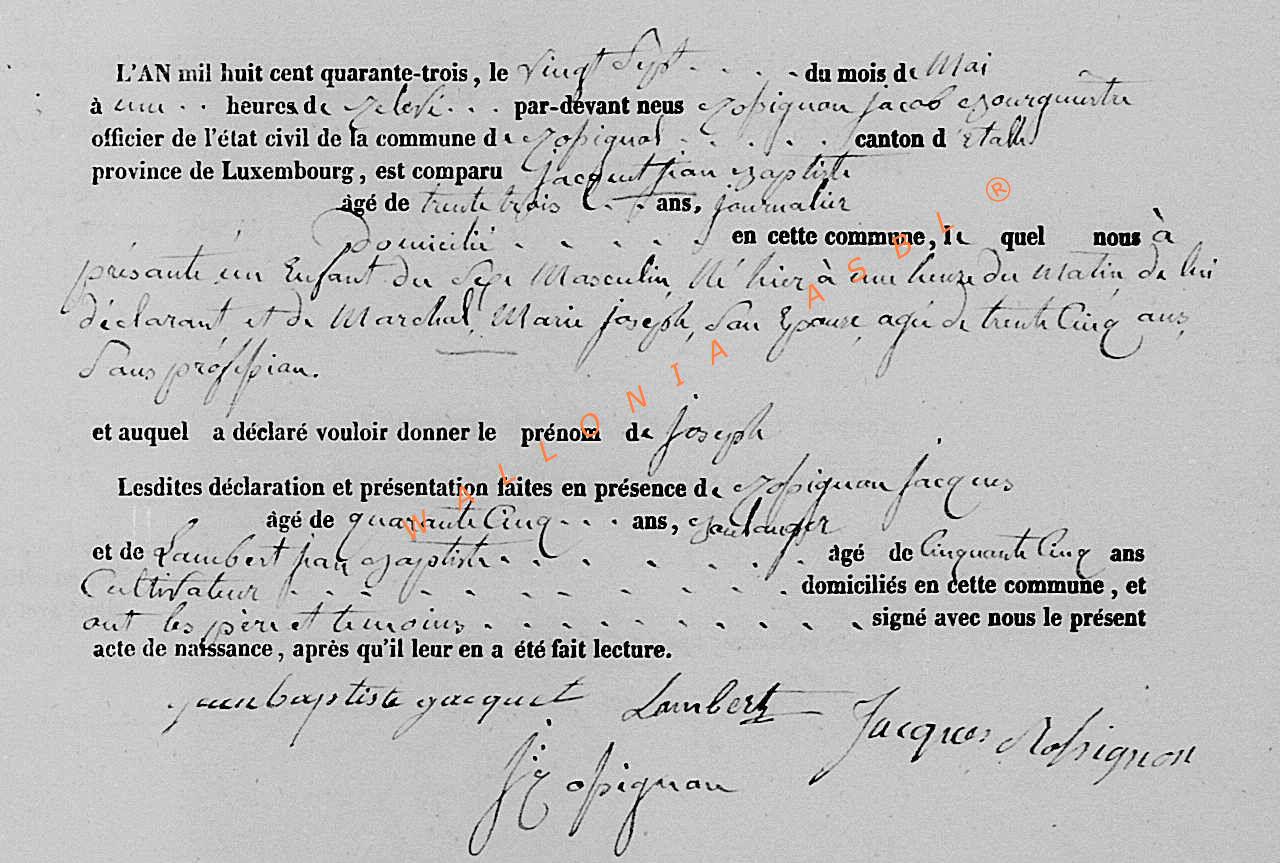 L'AN mil huit cent quarante-trois, le vingt Sept . . . . du mois de Mai
à une . . heures de relevé . . . par-devant nous Rossignon jacob Bourgmestre
officier de l'état civil de la commune de Rossignol . . . . . canton d'Etalle
province de Luxembourg, est comparu jacquet jean Baptiste
âgé de trente trois . . ans, journalier
Domicilié . . . . . en cette commune, le quel nous à
présanté un Enfant du Sexe Masculin, Né hier à une heure du Matin, de lui
déclarant et de Marchal, Marie joseph, Son Epouse, agée de trente Cinq ans,
Sans proféssian.
et auquel a déclaré vouloir donner le prénom de joseph
Lesdites déclaration et présentation faites en présence de Rossignon jacques
âgé de quarante Cinq . . . ans, Boulanger
et de Lambert jean Baptiste . . . . . . . âgé de Cinquante Cinq ans
Cultivateur . . . . . . . . . . domiciliés en cette commune, et
ont les père et temoins . . . . . . . . . . signé avec nous le présent
acte de naissance, après qu'il leur en a été fait lecture.
jean baptiste jacquet Lambert Jacques Rossignon
J Rossignon
WALLONIA ASBL ®